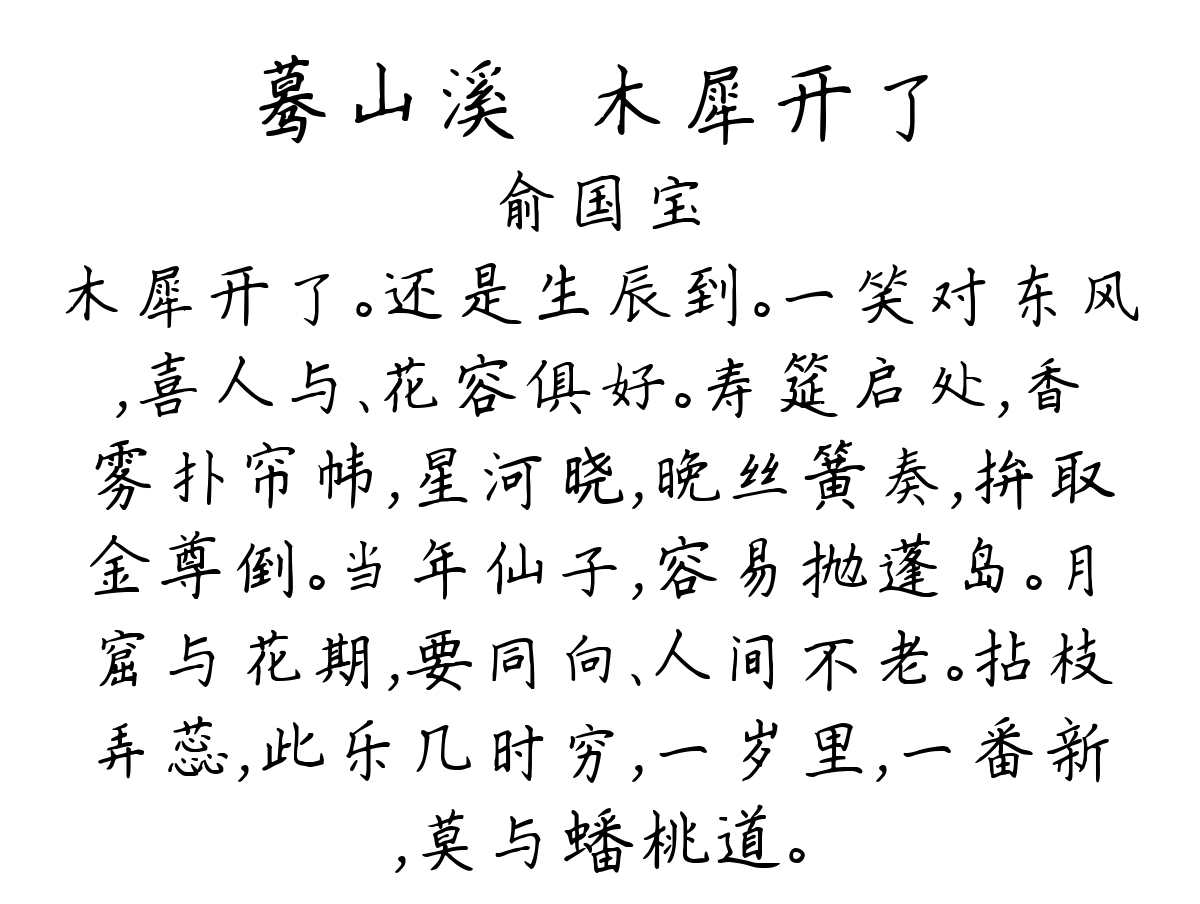 蓦山溪 木犀开了
俞国宝
木犀开了。还是生辰到。一笑对东风
,喜人与、花容俱好。寿筵启处,香
雾扑帘帏,星河晓,晚丝簧奏,拚取
金尊倒。当年仙子,容易抛蓬岛。月
窟与花期,要同向、人间不老。拈枝
弄蕊,此乐几时穷,一岁里,一番新
,莫与蟠桃道。